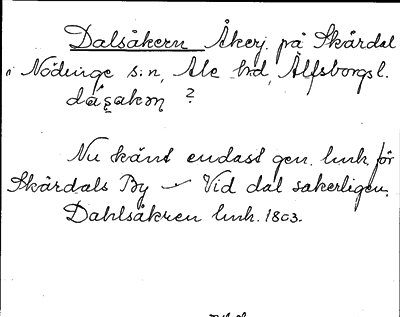 Dalsåkern Åkerj. på Skårdal
i Nödinge s:n, Ale hd, Älfsborgs l.
dåsakǝn ?
Nu känt endast gen. link för
Skårdals By – Vid dal sakerligen.
Dahlsåkren link. 1803.